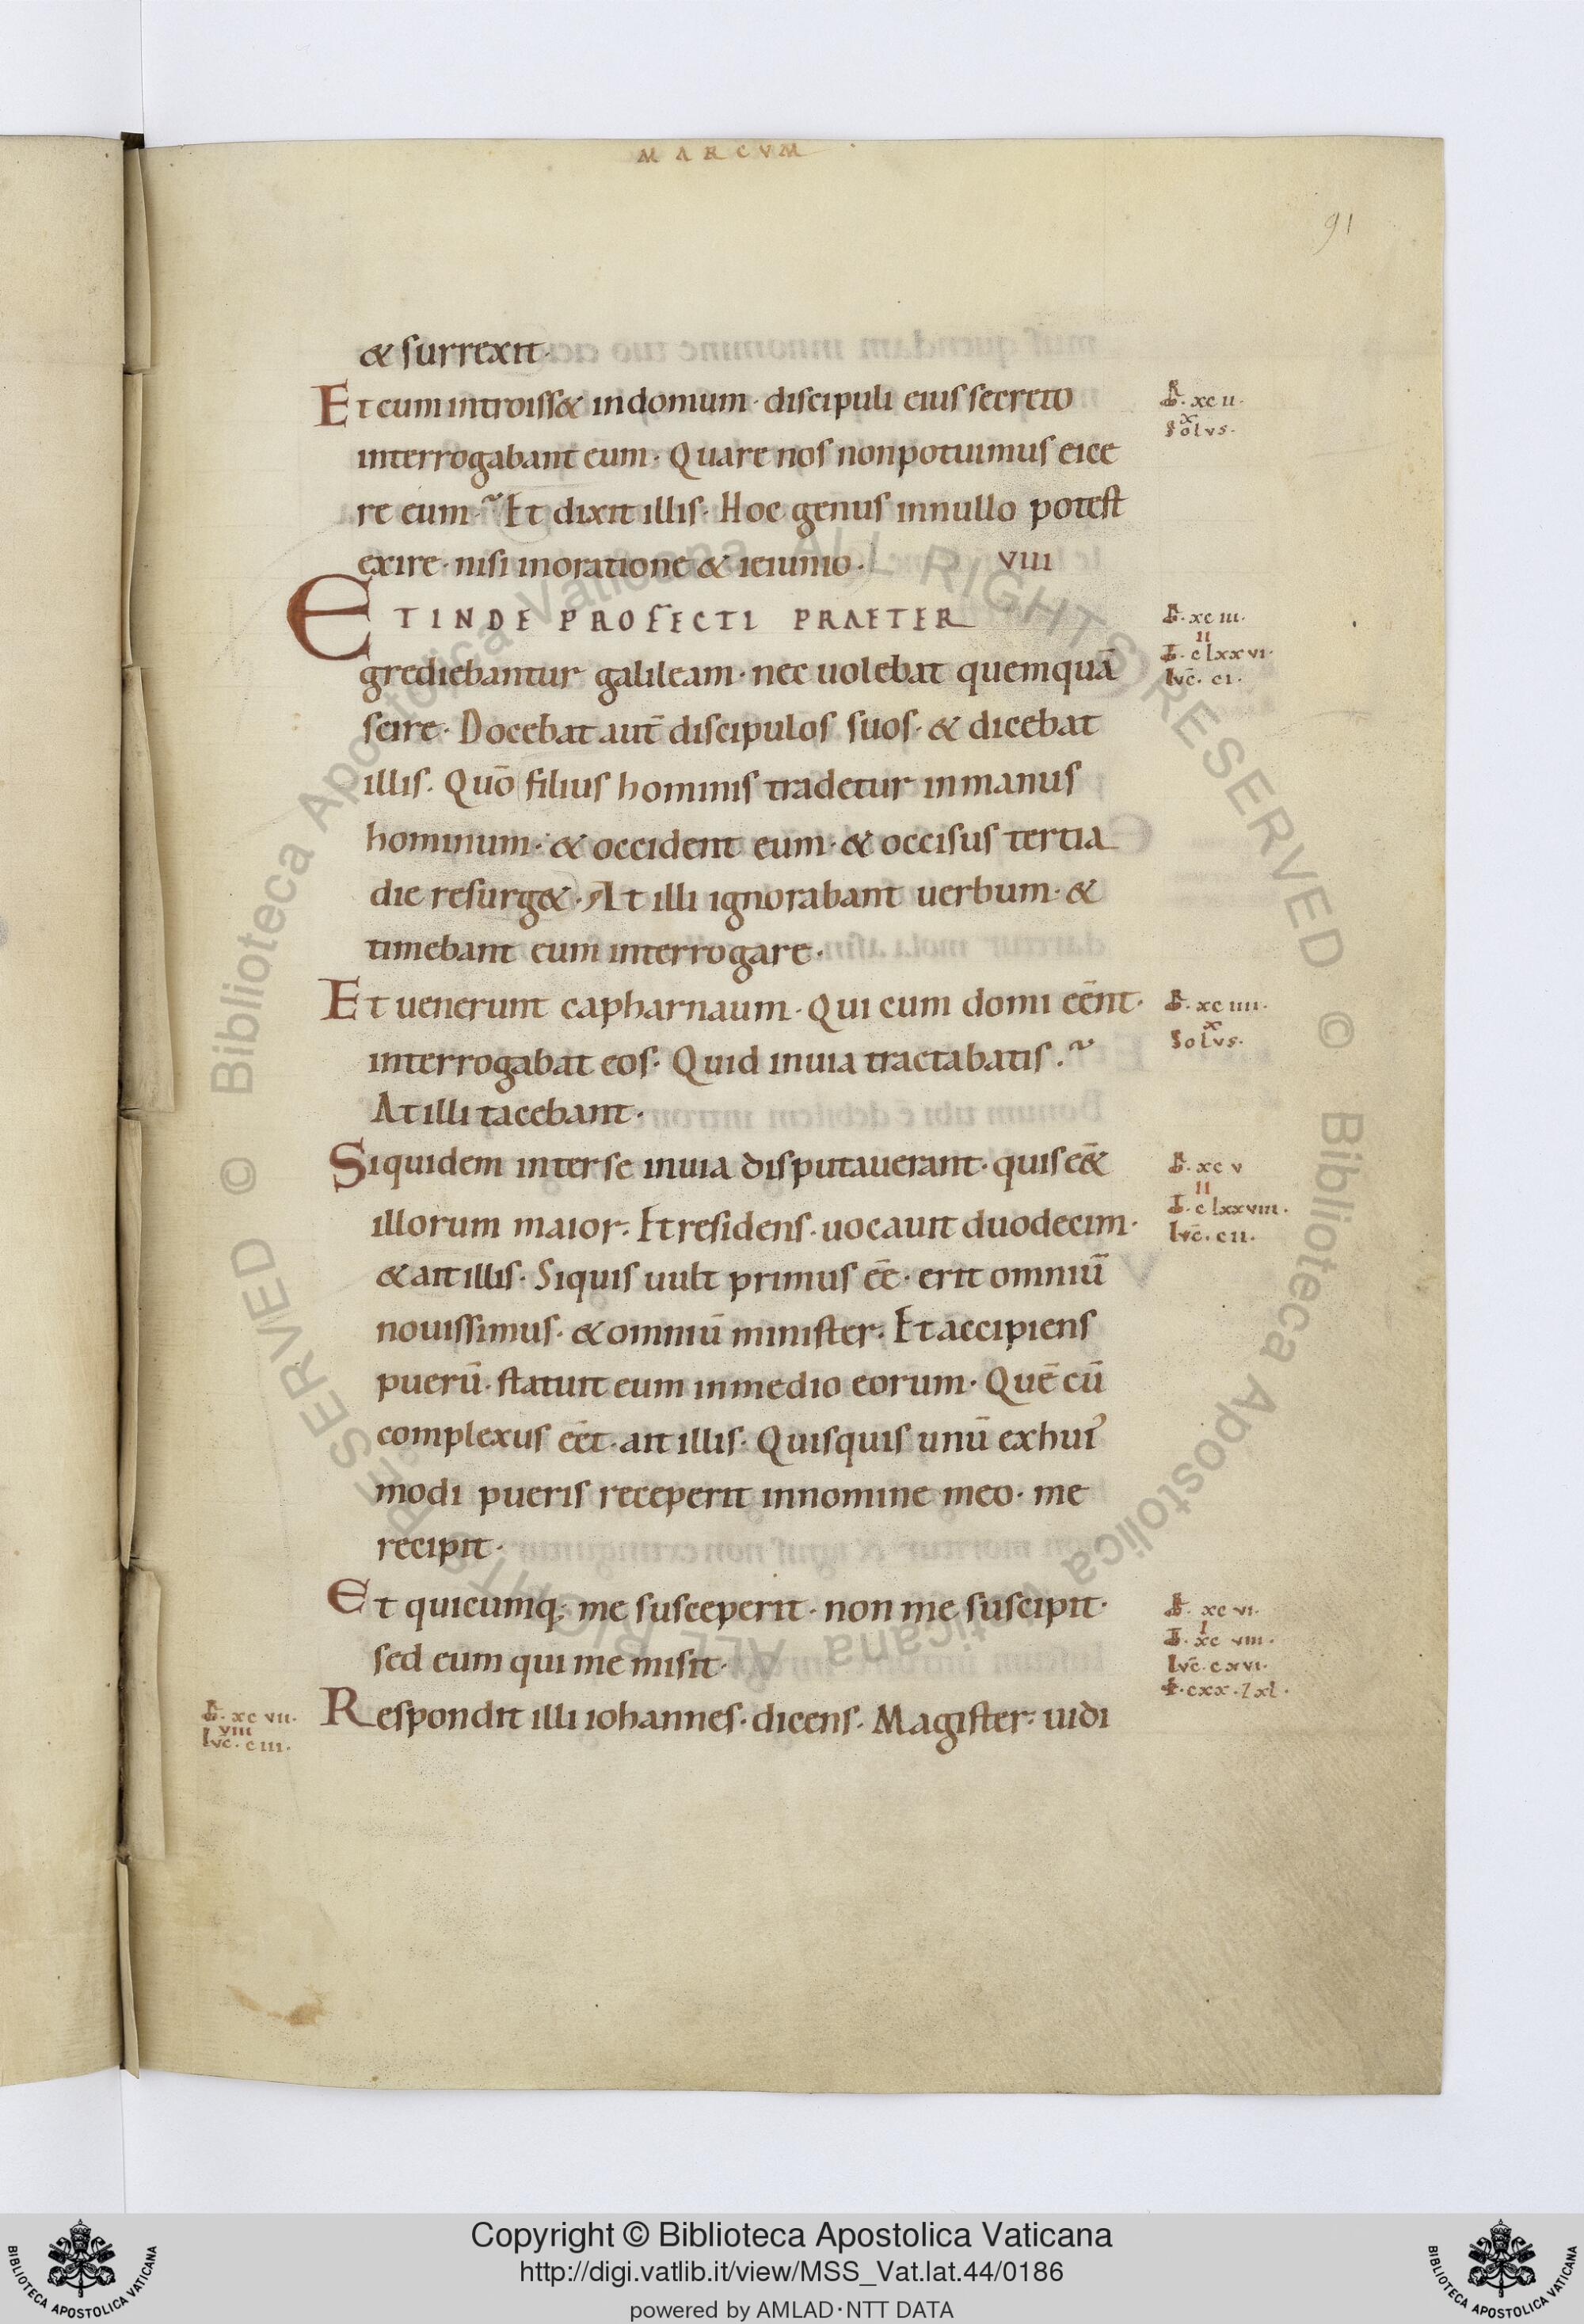 MARCVM
91
& surrexit·
Et cum introiss& in domum· discipuli eius secreto
interrogabant eum· Quare nos non potuimus eice
re eum·~ Et dixit illis· Hoc genus in nullo potest
exire· nisi in oratione & ieiunio· VIII
ET INDE PROFECTI PRAETER
grediebantur galileam· nec uolebat quemquā
scire· Docebat aut̄ discipulos suos· & dicebat
illis· Quō filius hominis tradetur in manus
hominum·· & occident eum· & occisus tertia
die resurg&· At illi ignorabant uerbum· &
timebant eum interrogare·
Et uenerunt capharnaum· Qui cum domi eēnt·
interrogabat eos· Quid in uia tractabatis·~
At illi tacebant·
Siquidem inter se in uia disputauerant· quis eē&
illorum maior· Et residens· uocauit duodecim·
& ait illis· Siquis uult primus eē· erit omniū
nouissimus· & omniū minister· Et accipiens
puerū· statuit eum in medio eorum· Quē cū
complexus eēt· ait illis· Quisquis unū ex hui᾽
modi pueris receperit in nomine meo· me
recipit·
Et quicumq; me susceperit· non me suscipit·
sed eum qui me misit·
Respondit illi iohannes· dicens· Magister· uidi
xc ii·
x
Solvs·
xc iii·
II
c lxxvi·
lvc̄· ci·
xc iiii·
x
Solvs·
xc v
II
c lxxviii·
lvc̄· cii·
xc vi·
I
xc viii·
lvc̄· cxvi·
cxx· lxl·
xc vii·
VIII
lvc̄· ciii·
Copyright © Biblioteca Apostolica Vaticana
http://digi.vatlib.it/view/MSS_Vat.lat.44/0186
powered by AMLAD·NTT DATA
BIBLIOTECA APOSTOLICA VATICANA
BIBLIOTECA APOSTOLICA VATICANA
© Biblioteca Apostolica Vaticana ALL RIGHTS RESERVED
© Biblioteca Apostolica Vaticana ALL RIGHTS RESERVED